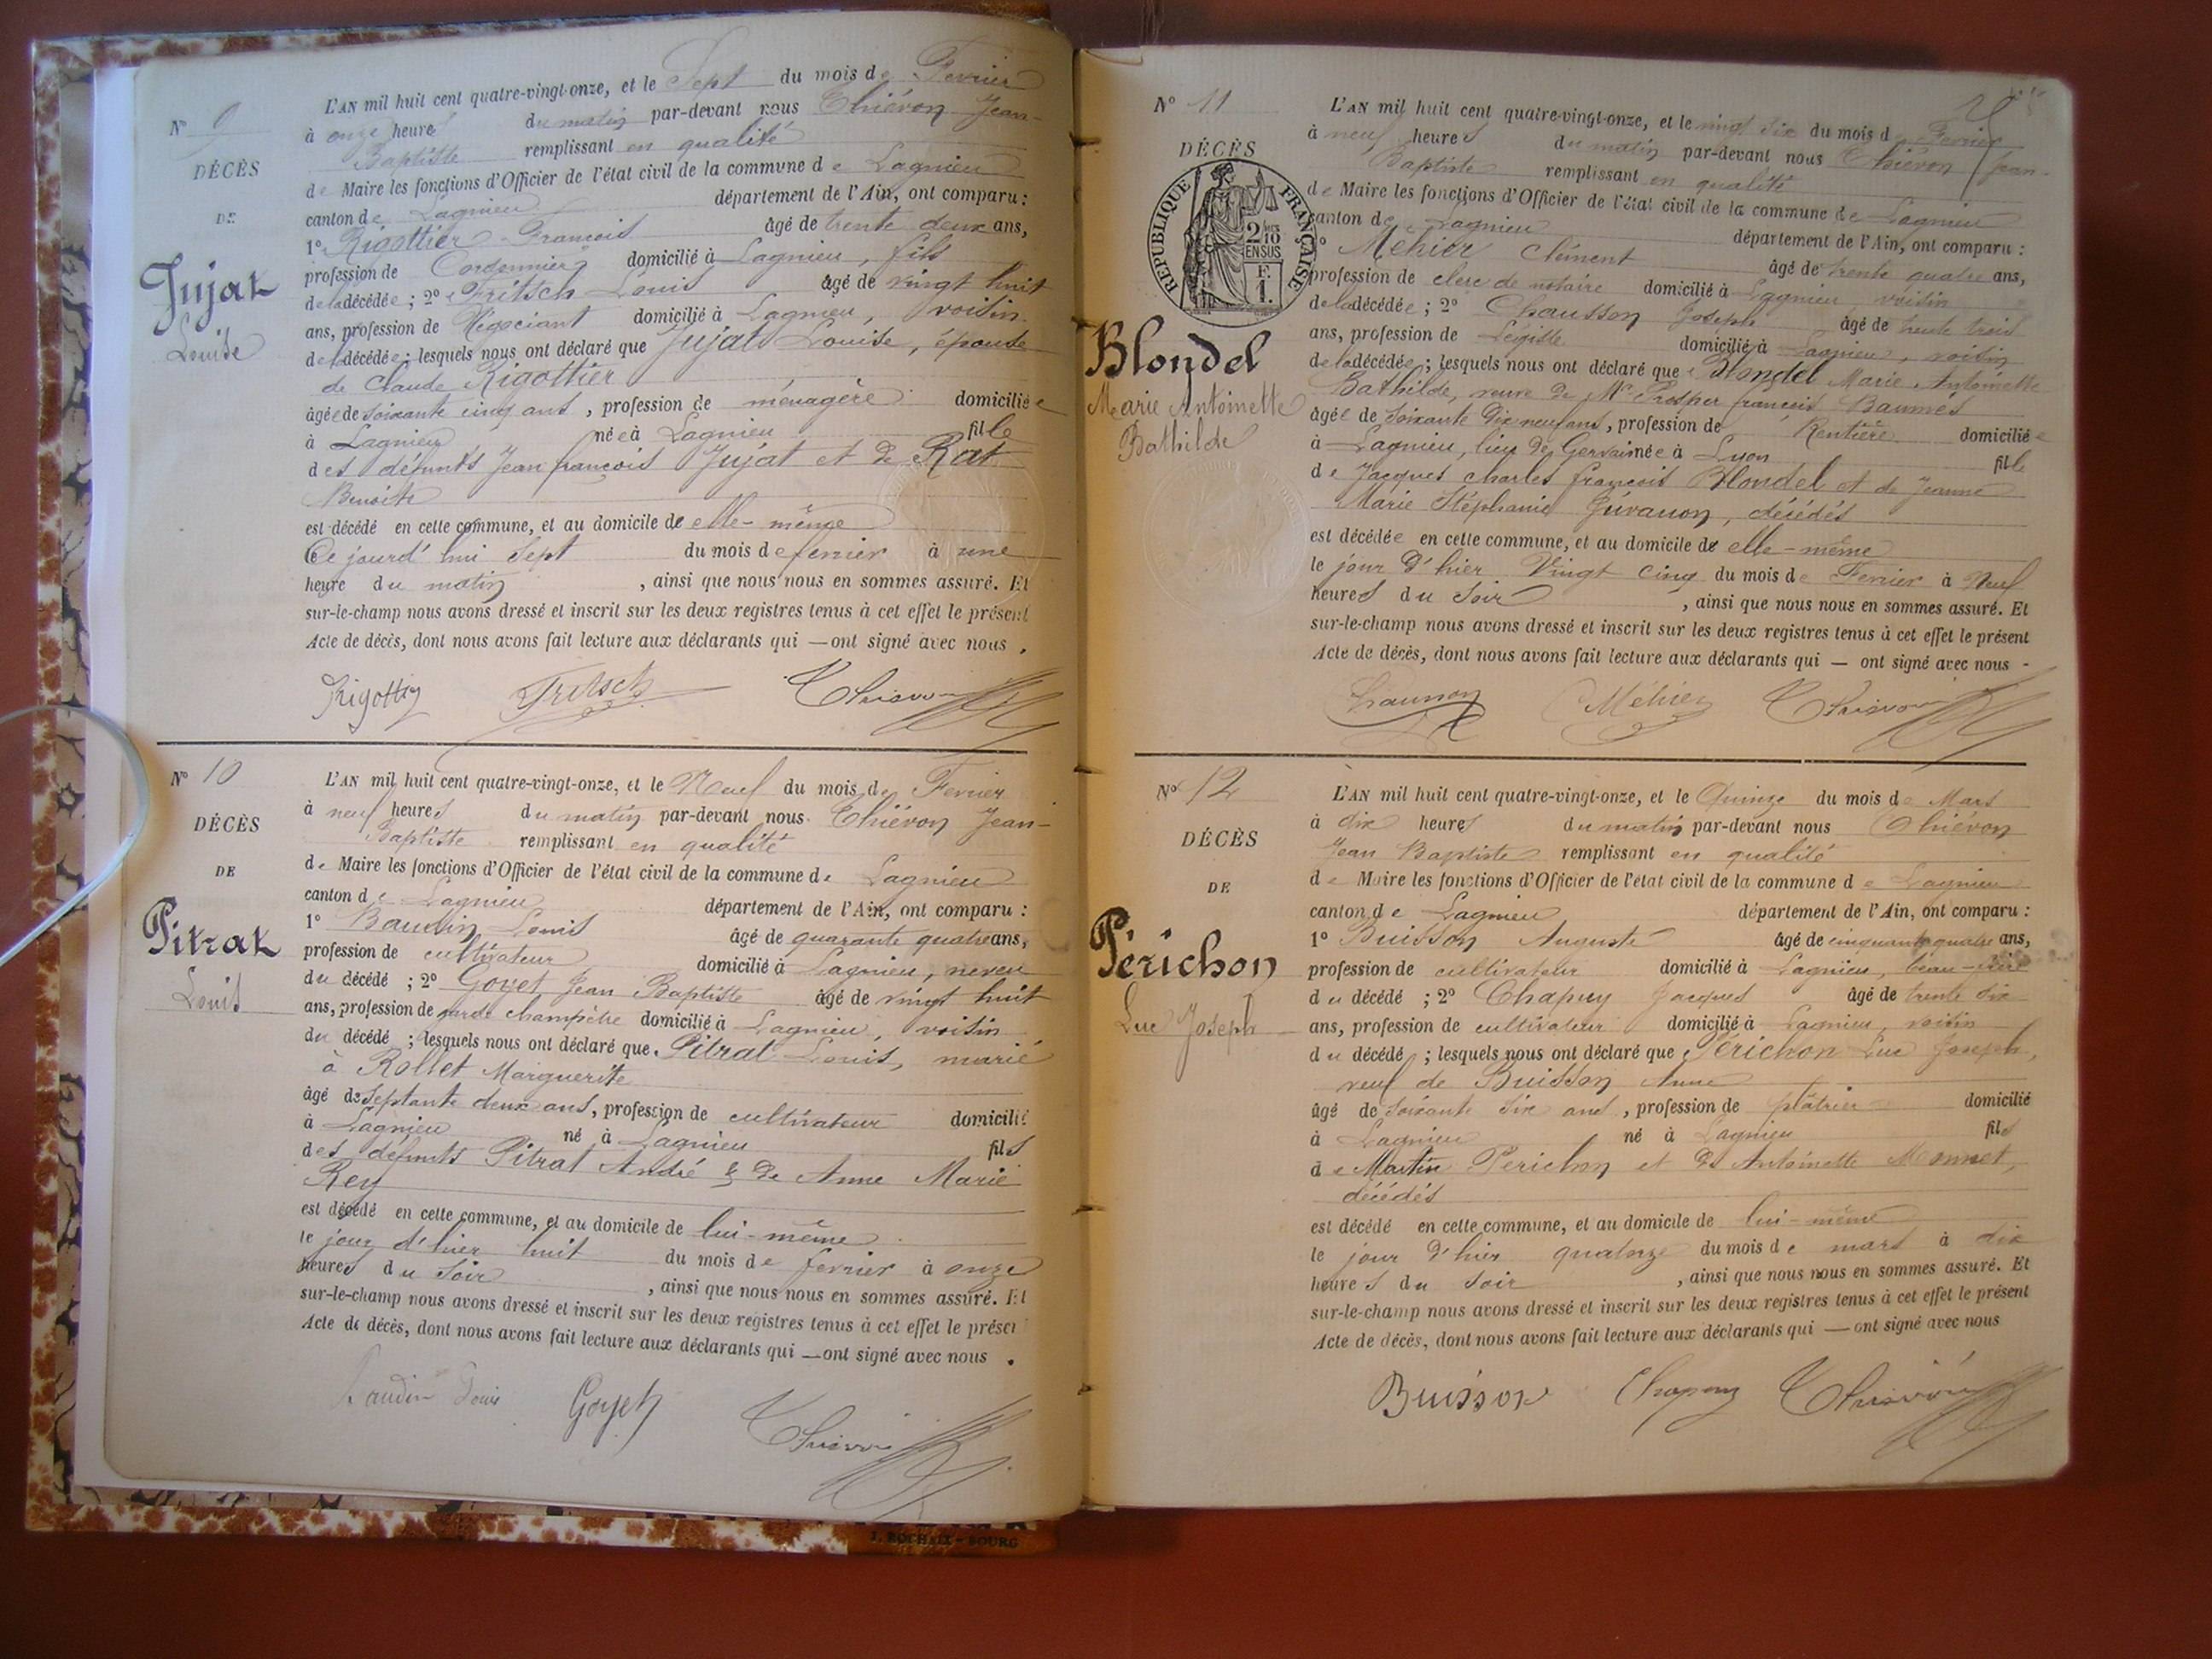 N° 9
DÉCÈS
DE
Jujat
Louise
L'AN mil huit cent quatre-vingt-onze, et le Sept du mois de Fevrier
à onze heures du matin par-devant nous Thiévon Jean-
Baptiste remplissant en qualité
de Maire les fonctions d'Officier de l'état civil de la commune de Lagnieu
canton de Lagnieu département de l'Ain, ont comparu :
1° Rigottier François âgé de trente deux ans,
profession de Cordonnier domicilié à Lagnieu, fils
de la décédée ; 2° Fritsch Louis âgé de vingt huit
ans, profession de Négociant domicilié à Lagnieu, voisin
de la décédée ; lesquels nous ont déclaré que Jujat Louise, épouse
de Claude Rigottier
âgée de soixante cinq ans, profession de ménagère domiciliée
à Lagnieu née à Lagnieu fille
des défunts Jean françois Jujat et de Rat
Benoite
est décédé en cette commune, et au domicile de elle-même
Ce jourd'hui Sept du mois de fevrier à une
heure du matin, ainsi que nous nous en sommes assuré. Et
sur-le-champ nous avons dressé et inscrit sur les deux registres tenus à cet effet le présent
Acte de décès, dont nous avons fait lecture aux déclarants qui — ont signé avec nous.
Rigottier Fritsch Thiévon
N° 10
DÉCÈS
DE
Pitrat
Louis
L'AN mil huit cent quatre-vingt-onze, et le Neuf du mois de Fevrier
à neuf heures du matin par-devant nous Thiévon Jean-
Baptiste remplissant en qualité
de Maire les fonctions d'Officier de l'état civil de la commune de Lagnieu
canton de Lagnieu département de l'Ain, ont comparu :
1° Baudin Louis âgé de quarante quatre ans,
profession de cultivateur domicilié à Lagnieu, neveu
du décédé ; 2° Goyet Jean Baptiste âgé de vingt huit
ans, profession de garde champêtre domicilié à Lagnieu, voisin
du décédé ; lesquels nous ont déclaré que Pitrat Louis, marié
à Rollet Marguerite
âgé de septante deux ans, profession de cultivateur domicilié
à Lagnieu né à Lagnieu fils
des défunts Pitrat André & de Anne Marie
Rey
est décédé en cette commune, et au domicile de lui-même
le jour d'hier huit du mois de fevrier à onze
heures du soir, ainsi que nous nous en sommes assuré. Et
sur-le-champ nous avons dressé et inscrit sur les deux registres tenus à cet effet le présen
Acte de décès, dont nous avons fait lecture aux déclarants qui — ont signé avec nous.
Baudin Louis Goyet Thiévon
J. ROCHAIX - BOURG
N° 11
DÉCÈS
RÉPUBLIQUE FRANÇAISE
2/10 EN SUS
F.
1.
Blondel
Marie Antoinette
Bathilde
L'AN mil huit cent quatre-vingt-onze, et le vingt six du mois d Fevrier
à neuf heures du matin par-devant nous Thiévon Jean-
Baptiste remplissant en qualité
de Maire les fonctions d'Officier de l'état civil de la commune de Lagnieu
canton de Lagnieu département de l'Ain, ont comparu :
1° Méhier Clément âgé de trente quatre ans,
profession de clerc de notaire domicilié à Lagnieu, voisin
de la décédée ; 2° Chausson Joseph âgé de trente trois
ans, profession de Légiste domicilié à Lagnieu, voisin
de la décédée ; lesquels nous ont déclaré que Blondel Marie Antoinette
Bathilde, veuve de Mr Prosper françois Baumés
âgée de soixante dix neuf ans, profession de Rentière domiciliée
à Lagnieu, lieu de Gervais née à Lyon fille
de Jacques Charles françois Blondel et de Jeanne
Marie Stéphanie Juvanon, décédés
est décédée en cette commune, et au domicile de elle-même
le jour d'hier Vingt cinq du mois de Fevrier à Neuf
heures du soir, ainsi que nous nous en sommes assuré. Et
sur-le-champ nous avons dressé et inscrit sur les deux registres tenus à cet effet le présent
Acte de décès, dont nous avons fait lecture aux déclarants qui — ont signé avec nous -
Chausson Méhier Thiévon
N° 12
DÉCÈS
DE
Périchon
Luc Joseph
L'AN mil huit cent quatre-vingt-onze, et le Quinze du mois de Mars
à dix heures du matin par-devant nous Thiévon
Jean Baptiste remplissant en qualité
de Maire les fonctions d'Officier de l'état civil de la commune de Lagnieu
canton de Lagnieu département de l'Ain, ont comparu :
1° Buisson Auguste âgé de cinquante quatre ans,
profession de cultivateur domicilié à Lagnieu, beau-frère
du décédé ; 2° Chapuy Jacques âgé de trente six
ans, profession de cultivateur domicilié à Lagnieu, voisin
du décédé ; lesquels nous ont déclaré que Périchon Luc Joseph,
veuf de Buisson Anne
âgé de soixante six ans, profession de plâtrier domicilié
à Lagnieu né à Lagnieu fils
de Martin Perichon et de Antoinette Monnet,
décédés
est décédé en cette commune, et au domicile de lui-même
le jour d'hier quatorze du mois de mars à dix
heures du soir, ainsi que nous nous en sommes assuré. Et
sur-le-champ nous avons dressé et inscrit sur les deux registres tenus à cet effet le présent
Acte de décès, dont nous avons fait lecture aux déclarants qui — ont signé avec nous
Buisson Chapuy Thiévon